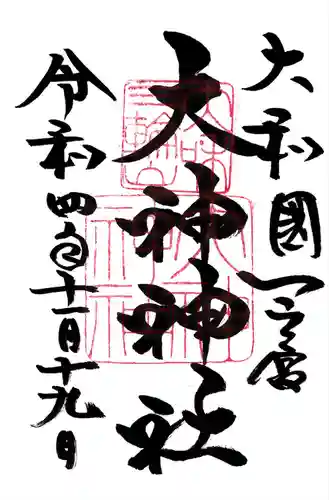 大和國一之宮
大神神社
令和四年十一月十九日